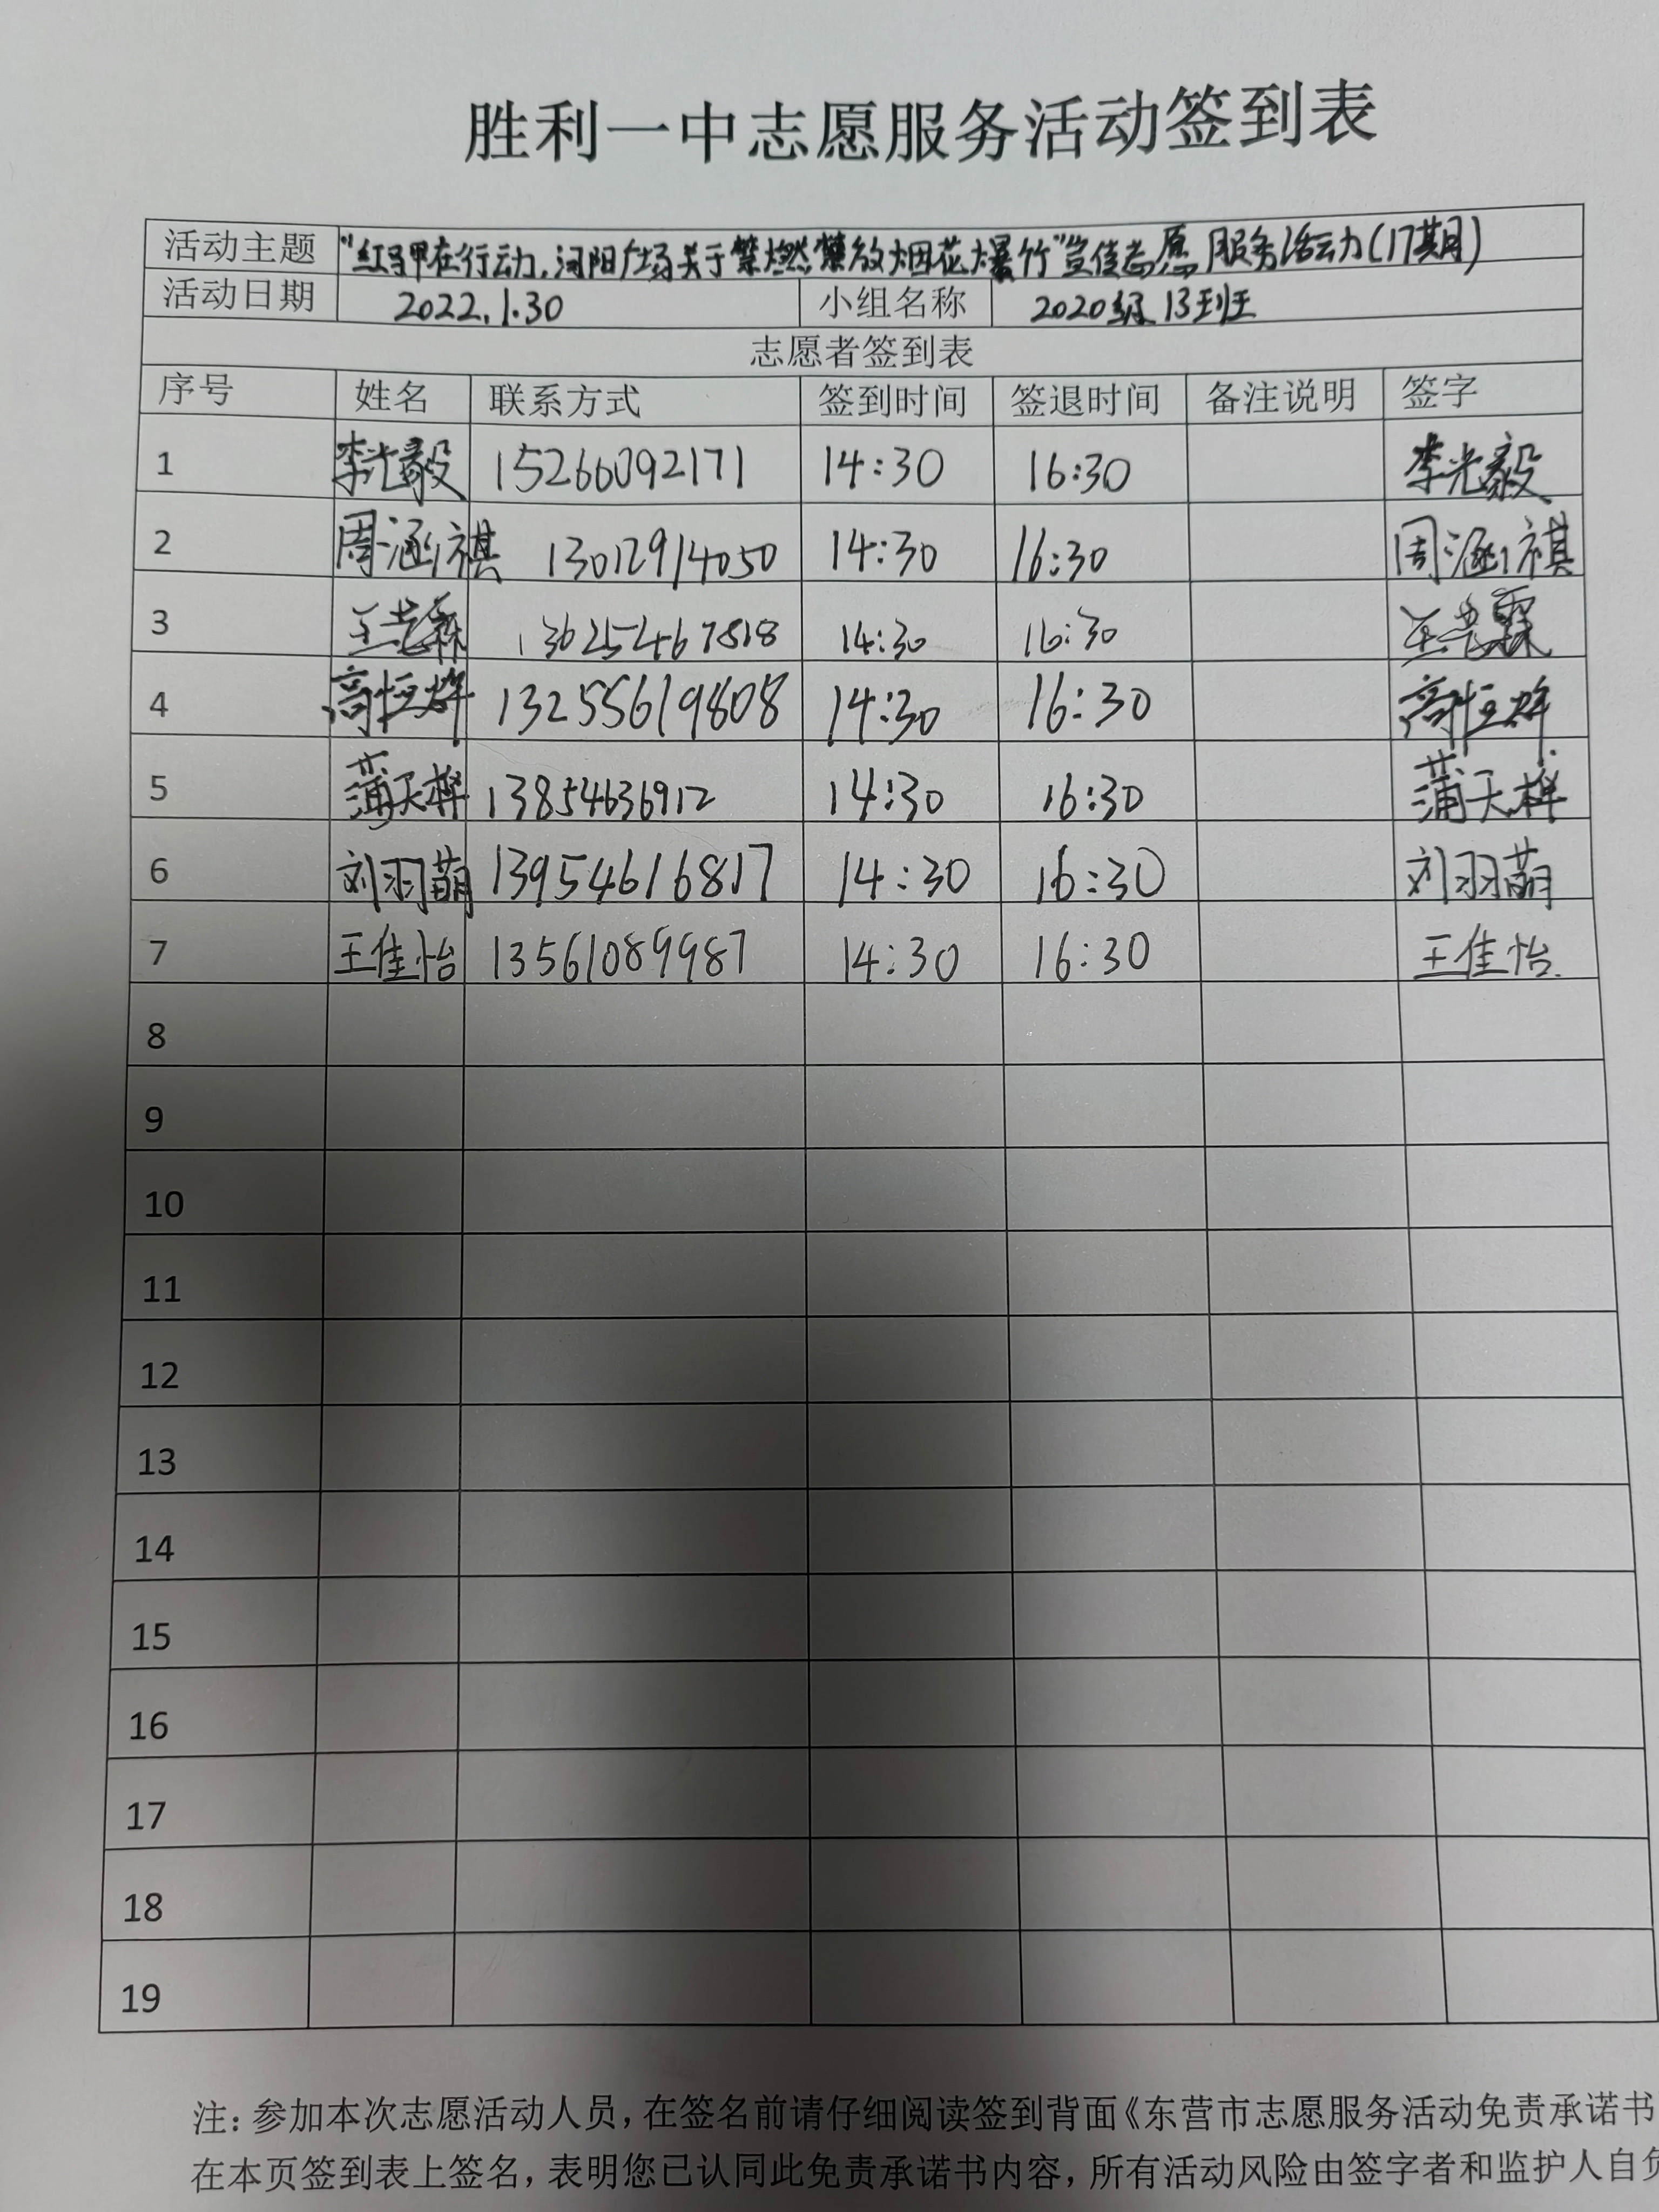 胜利一中志愿服务活动签到表
活动主题 "红马甲在行动,河阳广场关于禁燃禁放烟花爆竹"宣传志愿服务活动(17期)
活动日期 2022.1.30 小组名称 2020级13班
志愿者签到表
序号 姓名 联系方式 签到时间 签退时间 备注说明 签字
1 李光毅 15266092171 14:30 16:30 李光毅
2 周涵祺 13012914050 14:30 16:30 周涵祺
3 14:30 16:30
4 高恒烨 13255619808 14:30 16:30 高恒烨
5 蒲天样 13854636912 14:30 16:30 蒲天样
6 刘羽萌 13954616817 14:30 16:30 刘羽萌
7 王佳怡 13561089987 14:30 16:30 王佳怡
8
9
10
11
12
13
14
15
16
17
18
19
注:参加本次志愿活动人员,在签名前请仔细阅读签到背面《东营市志愿服务活动免责承诺书
在本页签到表上签名,表明您已认同此免责承诺书内容,所有活动风险由签字者和监护人自负